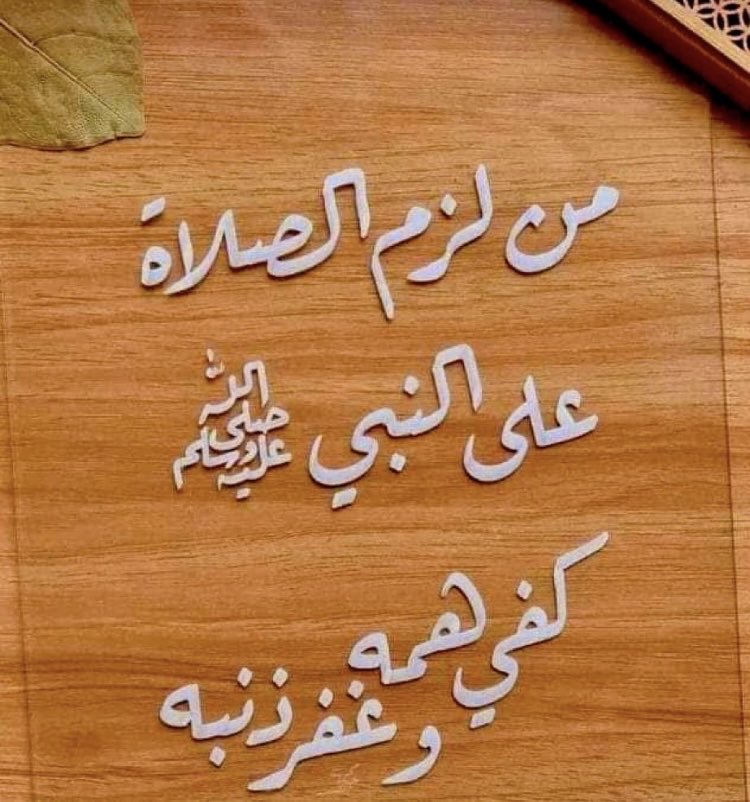 من لزم الصلاة
على النبي ﷺ
كفي همه
وغفر ذنبه